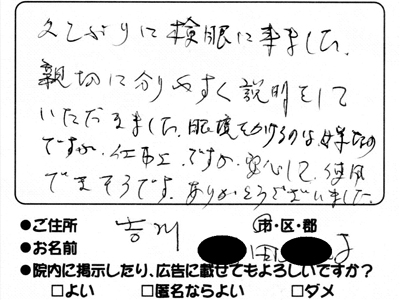 久しぶりに検眼に来ました。
親切に分りやすく説明をして
いただきました。眼境をかけるのは、嫌なの
ですが、仕事上、ですが、安心して、使用
できそうです。ありがとうございました
●ご住所 吉川 市・区・郡
●お名前 田 子
●院内に掲示したり、広告に載せてもよろしいですか?
□よい □匿名ならよい □ダメ